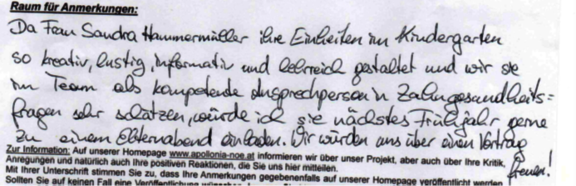 Raum für Anmerkungen:
Da Frau Sandra Hammermüller ihre Einheiten im Kindergarten
so kreativ, lustig, informativ und lehrreich gestaltet und wir sie
im Team als kompetente Ansprechperson in Zahngesundheits=
fragen sehr schätzen, würde ich sie nächstes Frühjahr gerne
zu einem Elternabend einladen. Wir würden uns über einen Vortrag
freuen!
Zur Information: Auf unserer Homepage www.apollonia-noe.at informieren wir über unser Projekt, aber auch über Ihre Kritik,
Anregungen und natürlich auch Ihre positiven Reaktionen, die Sie uns hier mitteilen.
Mit Ihrer Unterschrift stimmen Sie zu, dass Ihre Anmerkungen gegebenenfalls auf unserer Homepage veröffentlicht werden
Sollten Sie auf keinen Fall eine Veröffentlichung